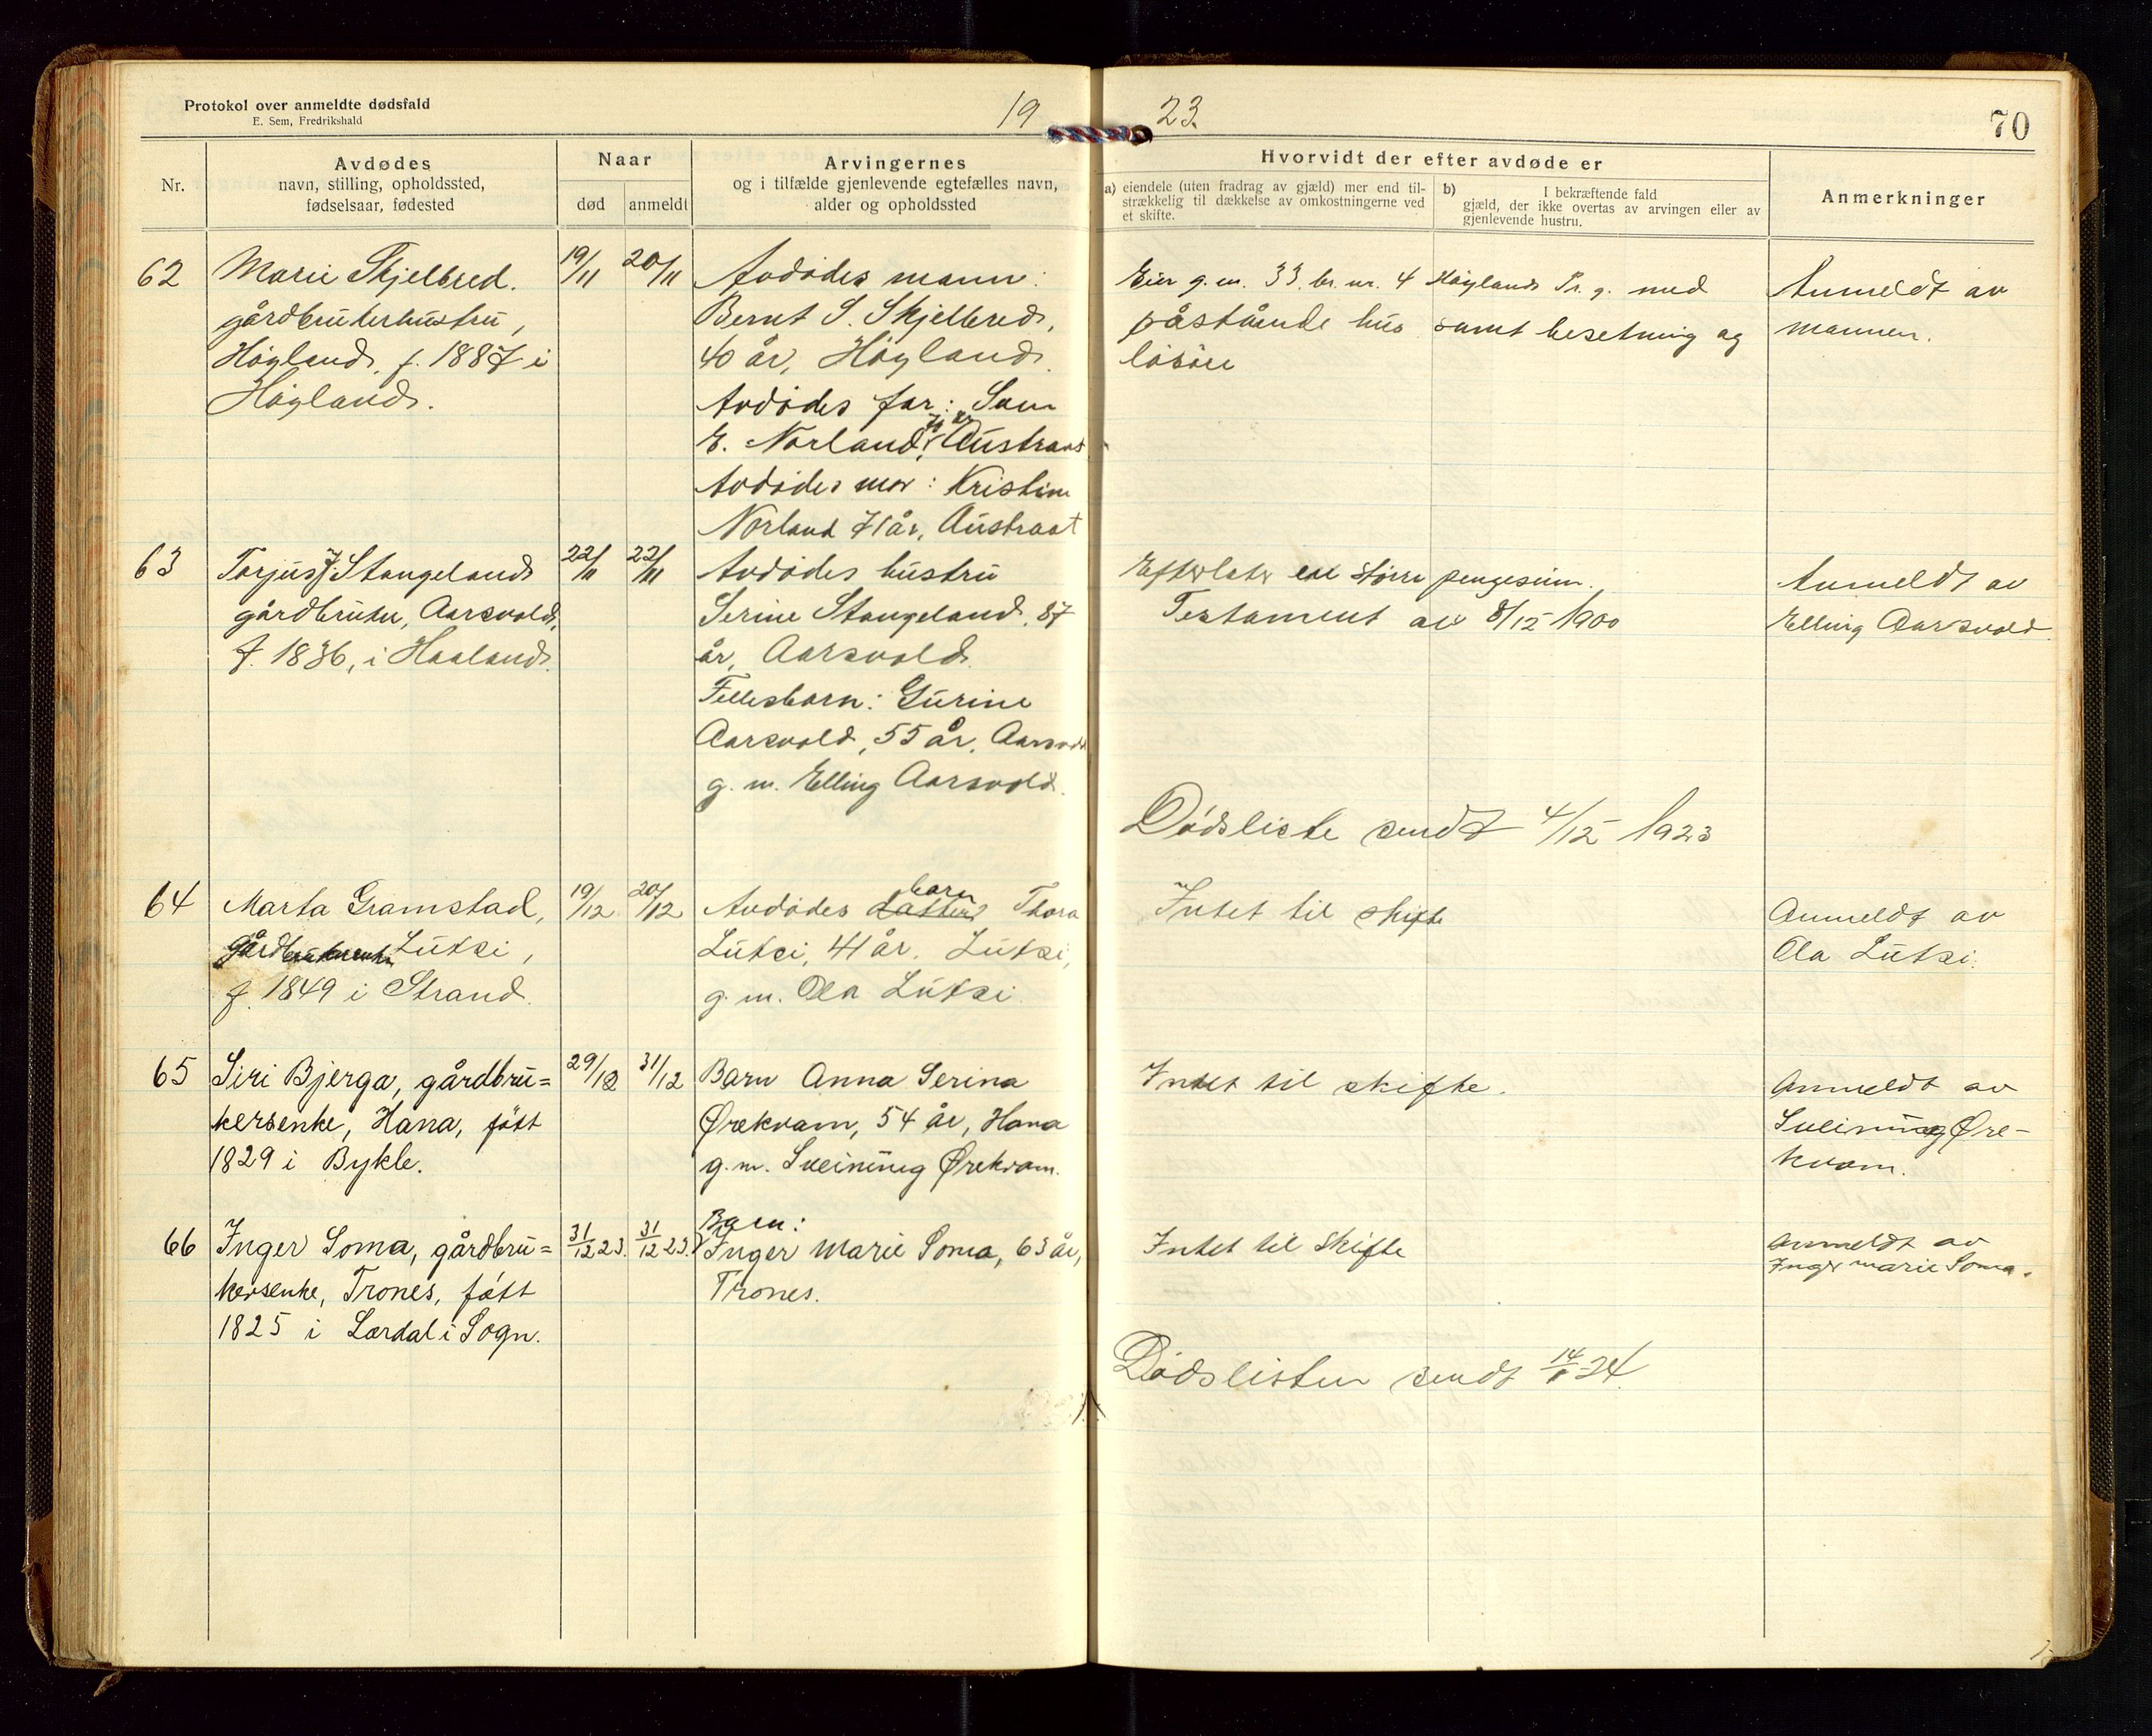 Protokol over anmeldte dødsfald
E. Sem, Fredrikshald
19 23.
70
Nr.
Avdødes
navn, stilling, opholdssted,
fødselsaar, fødested
Naar
død
anmeldt
Arvingernes
og i tilfælde gjenlevende egtefælles navn,
alder og opholdssted
Hvorvidt der efter avdøde er
a) eiendele (uten fradrag av gjæld) mer end til-
strækkelig til dækkelse av omkostningerne ved
et skifte.
b) I bekræftende fald
gjæld, der ikke overtas av arvingen eller av
gjenlevende hustru.
Anmerkninger
62
Marie Skjelbred.
gårdbrukerhustru,
Høyland, f. 1887 i
Høyland.
19/11
20/11
Avdødes mann:
Bernt S. Skjelbred,
40 år, Høyland.
Avdødes far: Sam
E. Norland, Austraat
Avdødes mor: Kristine
Norland 71 år, Austraat
Eier g. m. 33. br. nr. 4 Høyland Pr. g. med
påstående hus samt besetning og
løsøre
Anmeldt av
mannen.
63
Torjus J. Stangeland
gårdbruker, Aarsvold,
f. 1836, i Haaland.
22/11
22/11
Avdødes hustru
Serine Stangeland, 87
år, Aarsvold.
Fellesbarn: Gurine
Aarsvold, 55 år, Aarsvold
g. m. Elling Aarsvold.
Efterlater en større pengesum.
Testament av 8/12 1900
Anmeldt av
Elling Aarsvold
Dødsliste sendt 4/12 1923
64
Marta Gramstad,
Lutsi,
f. 1849 i Strand.
19/12
20/12
barn
Avdødes datter Thora
Lutsi, 41 år. Lutsi,
g. m. Ola Lutsi
Intet til skifte
Anmeldt av
Ola Lutsi.
65
Siri Bjerga, gårdbru=
kersenke, Hana, født
1829 i Bykle.
29/12
31/12
Barn Anna Serina
Ørekvam, 54 år, Hana
g. m. Sveinung Ørekvam.
Intet til skifte.
Anmeldt av
Sveinung Øre-
kvam.
66
Inger Soma, gårdbru=
kersenke, Trones, født
1825 i Lærdal i Sogn.
31/12 23.
31/12 23.
Barn:
Inger Marie Soma, 63 år,
Trones.
Intet til Skifte
Anmeldt av
Inger Marie Soma.
Dødslisten sendt 14/1 24.